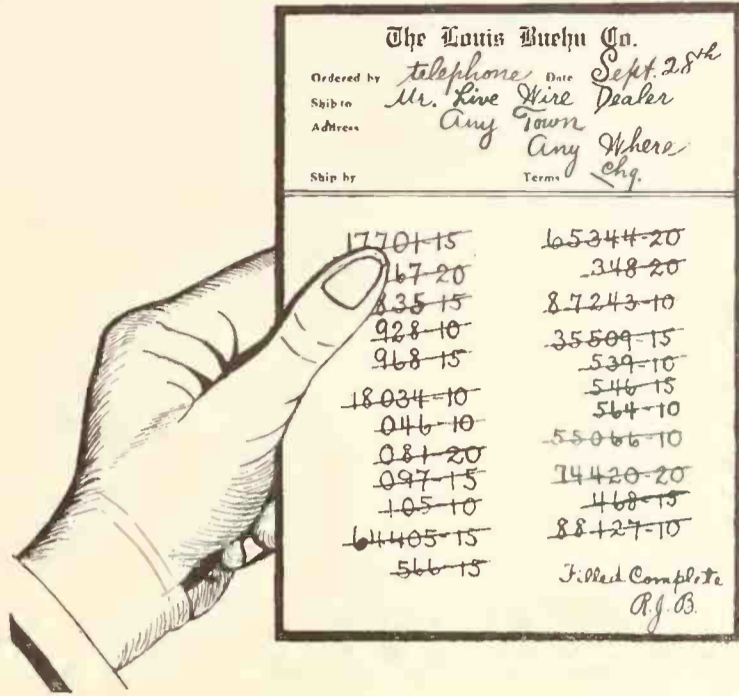 The Louis Buehn Co.
Ordered by telephone Date Sept. 28th
Ship to Mr. Live Wire Dealer
Address Any Town
Any Where
Ship by Terms Chg.
17701-15
67-20
835-15
928-10
968-15
18034-10
046-10
081-20
097-15
105-10
64405-15
566-15
65344-20
348-20
87243-10
35509-15
539-10
546-15
564-10
55066-10
74420-20
468-15
88127-10
Filled Complete
R.J.B.